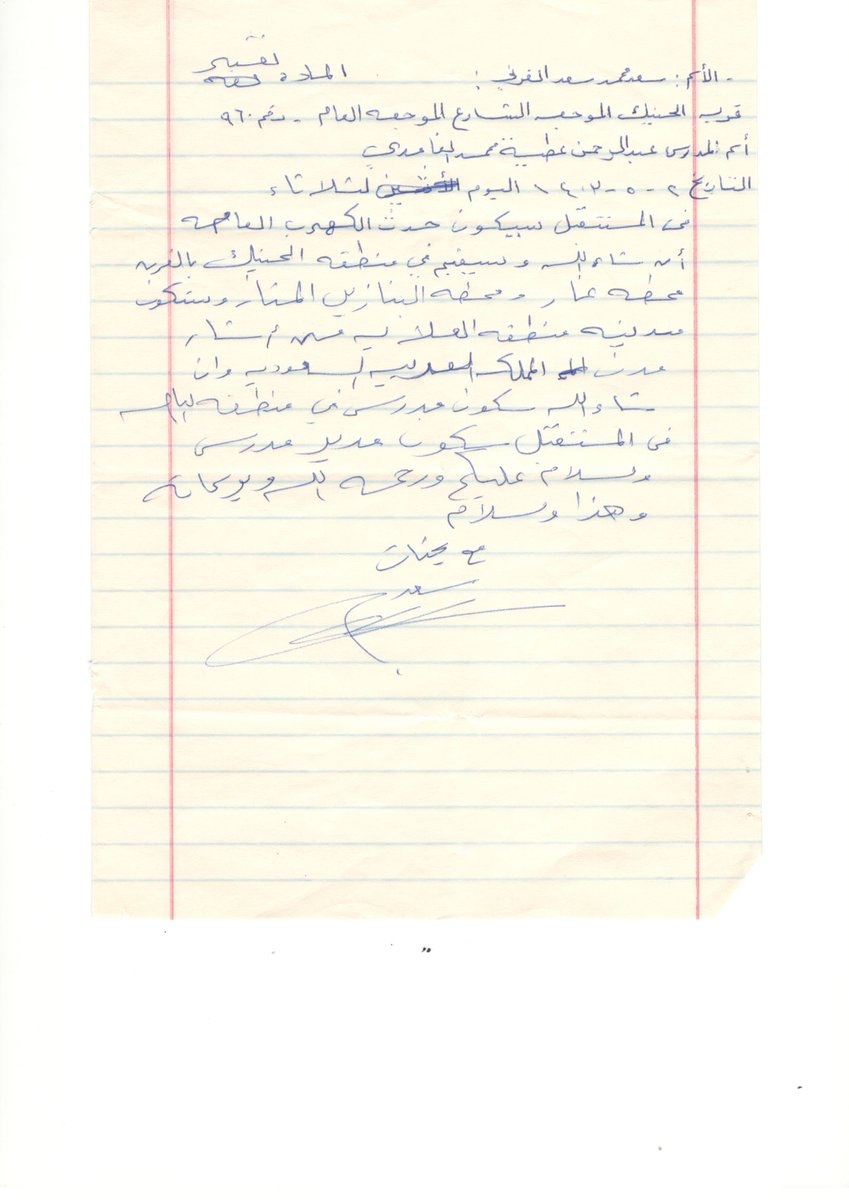 تفسير
- الأسم: سعد محمد سعد القرني: المادة
قرية الحنيك الموجهه الشارع الموجهه العام - رقم ٩٦٠
أسم المدرس عبدالرحمن عطية محمد الغامدي
التاريخ ٢ - ٥ - ١٤٠٣ اليوم لثلاثاء
فى المستقبل سيكون حدث الكهرب العامه
أن شاء الله وسيقيم في منطقه الحنيك بالقرن
محطه غاز ومحطه البنازين الممتاز وستكون
مدينه منطقه العلايه من
مدن المملكه العربيه السعوديه وان
شاء الله سكون مدرس في منطقه
فى المستقبل سكون مدير مدرسى
وسلام عليكم ورحمه الله وبركاته
وهذا وسلام
مع تحيات
سعد